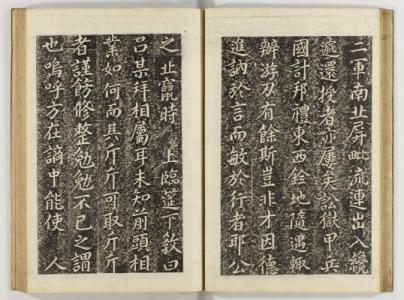 二軍南北屏毗流連出入纔
遞還授者亦屢矣訟獄甲兵
國計邦禮東西銓地隨遇輒
辦游刃有餘斯豈非才因德
進訥於言而敏於行者耶公
之北竄時 上臨筵下敎曰
呂某拜相屬耳未知前頭相
業如何而其斤斤可取斤斤
者謹飭修整勉勉不已之謂
也嗚呼方在謫中能使 人